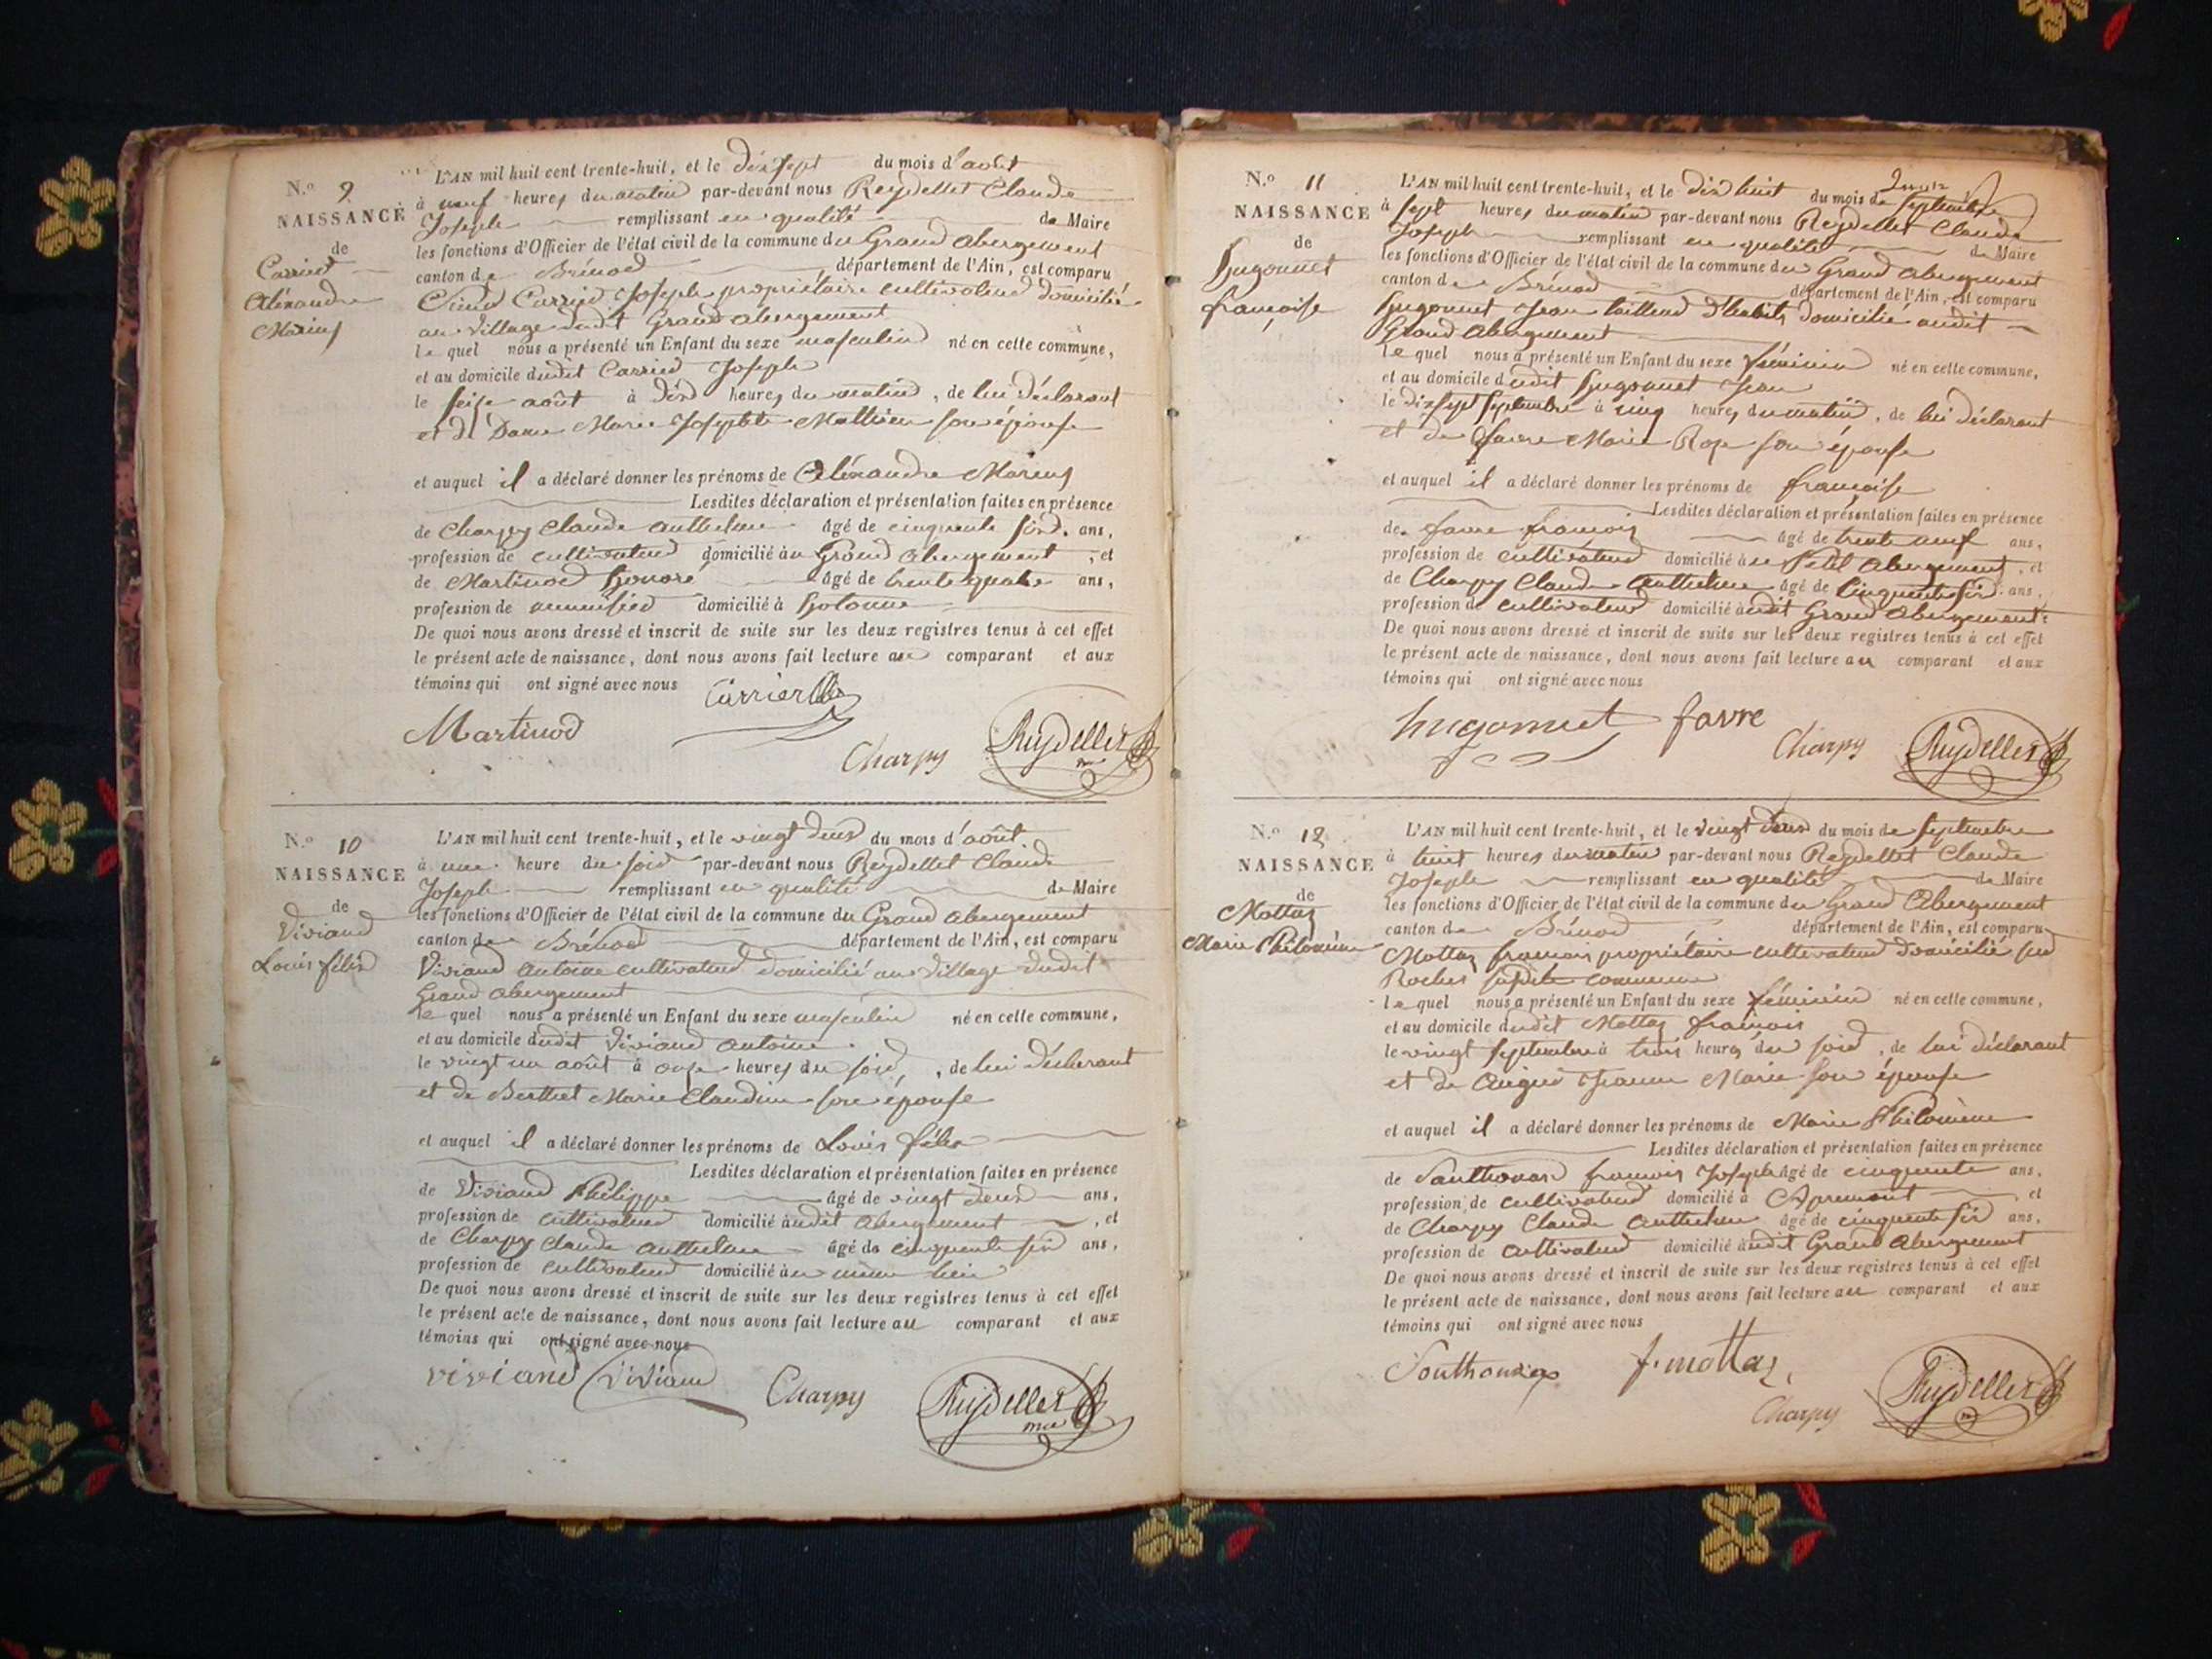 N.o 9
NAISSANCE
de
Carrier
Aléxandre
Marius
L'AN mil huit cent trente-huit, et le dix sept du mois d'août
à neuf heures du matin par-devant nous Reydellet Claude
Joseph remplissant en qualité de Maire
les fonctions d'Officier de l'état civil de la commune du Grand abergement
canton de Brénod département de l'Ain, est comparu
Sieur Carrier Joseph propriétaire cultivateur domicilié
au village dudit Grand abergement
le quel nous a présenté un Enfant du sexe masculin né en cette commune,
et au domicile dudit Carrier Joseph
le seize août à dix heures du matin, de lui déclarant
et de Dame Marie Josephte Mathieu son épouse
et auquel il a déclaré donner les prénoms de Aléxandre Marius
Lesdites déclaration et présentation faites en présence
de Charpy Claude anthelme âgé de cinquante six ans,
profession de cultivateur domicilié au Grand abergement, et
de Martinod honoré âgé de trente quatre ans,
profession de domicilié à hotonne
De quoi nous avons dressé et inscrit de suite sur les deux registres tenus à cet effet
le présent acte de naissance, dont nous avons fait lecture au comparant et aux
témoins qui ont signé avec nous
Carrier
Martinod
Charpy
Reydellet
N.o 10
NAISSANCE
de
Viviand
Louis félix
L'AN mil huit cent trente-huit, et le vingt deux du mois d'août
à une heure du soir par-devant nous Reydellet Claude
Joseph remplissant en qualité de Maire
les fonctions d'Officier de l'état civil de la commune du Grand abergement
canton de Brénod département de l'Ain, est comparu
Viviand antoine cultivateur domicilié au village dudit
Grand abergement
le quel nous a présenté un Enfant du sexe masculin né en cette commune,
et au domicile dudit Viviand antoine
le vingt un août à onze heures du soir, de lui déclarant
et de Berthet Marie Claudine son épouse
et auquel il a déclaré donner les prénoms de Louis félix
Lesdites déclaration et présentation faites en présence
de Viviand Philippe âgé de vingt deux ans,
profession de cultivateur domicilié audit abergement, et
de Charpy Claude anthelme âgé de cinquante six ans,
profession de cultivateur domicilié au même lieu
De quoi nous avons dressé et inscrit de suite sur les deux registres tenus à cet effet
le présent acte de naissance, dont nous avons fait lecture au comparant et aux
témoins qui ont signé avec nous
viviand Viviand
Charpy
Reydellet
N.o 11
NAISSANCE
de
hugonnet
françoise
L'AN mil huit cent trente-huit, et le dix huit du mois de septembre
à sept heures du matin par-devant nous Reydellet Claude
Joseph remplissant en qualité de Maire
les fonctions d'Officier de l'état civil de la commune du Grand abergement
canton de Brénod département de l'Ain, est comparu
hugonnet Jean tailleur d'habits domicilié audit
Grand abergement
le quel nous a présenté un Enfant du sexe féminin né en cette commune,
et au domicile dudit hugonnet Jean
le dix sept septembre à cinq heures du matin, de lui déclarant
et de favre Marie Rose son épouse
et auquel il a déclaré donner les prénoms de françoise
Lesdites déclaration et présentation faites en présence
de favre françois âgé de trente neuf ans,
profession de cultivateur domicilié au Petit abergement, et
de Charpy Claude anthelme âgé de cinquante six ans,
profession de cultivateur domicilié audit Grand abergement
De quoi nous avons dressé et inscrit de suite sur les deux registres tenus à cet effet
le présent acte de naissance, dont nous avons fait lecture au comparant et aux
témoins qui ont signé avec nous
hugonnet favre
Charpy
Reydellet
N.o 12
NAISSANCE
de
Mottaz
Marie Philomène
L'AN mil huit cent trente-huit, et le vingt deux du mois de septembre
à huit heures du matin par-devant nous Reydellet Claude
Joseph remplissant en qualité de Maire
les fonctions d'Officier de l'état civil de la commune du Grand Abergement
canton de Brénod département de l'Ain, est comparu
Mottaz françois propriétaire cultivateur domicilié sur
Roches susdite commune
le quel nous a présenté un Enfant du sexe féminin né en cette commune,
et au domicile dudit Mottaz françois
le vingt septembre à trois heures du soir, de lui déclarant
et de Jeanne Marie son épouse
et auquel il a déclaré donner les prénoms de Marie Philomène
Lesdites déclaration et présentation faites en présence
de françois Joseph âgé de cinquante ans,
profession de cultivateur domicilié à Apremont et
de Charpy Claude anthelme âgé de cinquante six ans,
profession de cultivateur domicilié audit Grand abergement
De quoi nous avons dressé et inscrit de suite sur les deux registres tenus à cet effet
le présent acte de naissance, dont nous avons fait lecture au comparant et aux
témoins qui ont signé avec nous
f. mottaz
Charpy
Reydellet